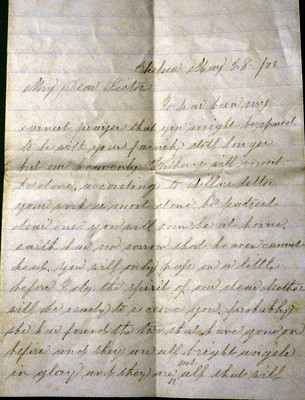 Chelsea May 28 /72
My Dear Sister
It has been my
earnest prayer that you might be spared
to be with your family still longer
but our heavenly Father's will must
be done, according to Willie's letter
your work is most done be patient
dear one you will soon be at home.
earth has no sorrow that heaven cannot
heal. You will only pass on a little
before I do. the spirit of our dear Mother
will be ready to receive you, probably
she has found the two that have gone on
before and they are all bright angels
in glory and they are not all that will